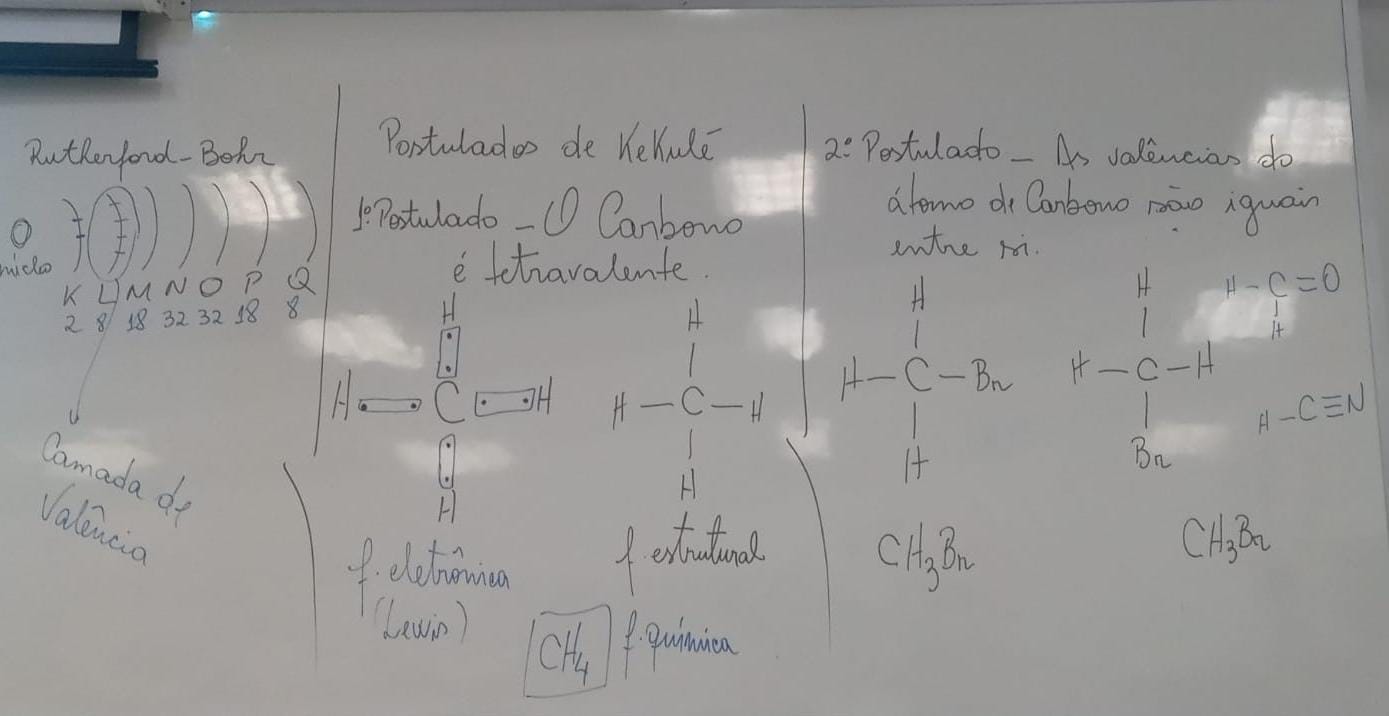 Rutherford-Bohr
K L M N O P Q
2 8 18 32 32 18 8
Camada de
Valência
Postulados de Kekulé
1º Postulado - O Carbono
é tetravalente.
H
H C H
H
f. eletrônica
(Lewis)
H
|
H - C - H
|
H
f. estrutural
CH₄ f. química
2º Postulado - As valências do
átomo de Carbono são iguais
entre si.
H
|
H - C - Br
|
H
CH₃Br
H
|
H - C - H
|
Br
CH₃Br
H - C = O
|
H
H - C ≡ N